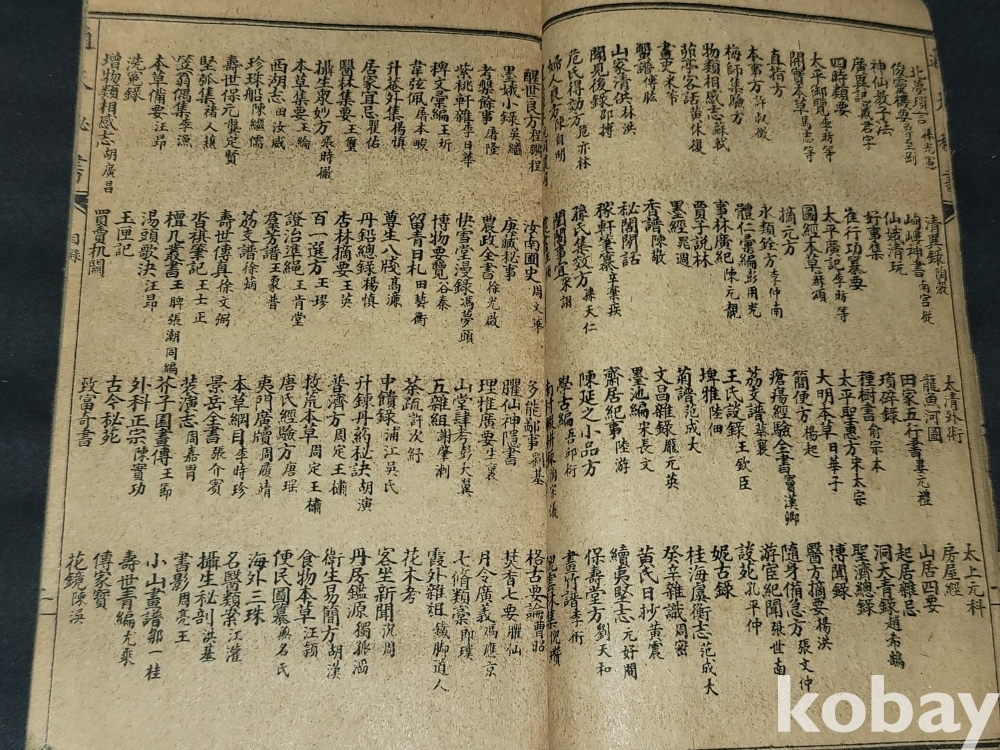 北夢瑣言 孫光憲
俊靈機要
神仙教子法
廣異記戴君孚
四時類要
太平御覽李昉等
開寶本草馬志等
直指方
本事方許叔微
梅師集驗方
物類相感志蘇軾
蘋亭客話黃休復
畫史米芾
蟹譜傅肱
山家清供林洪
聞見後錄邵博
危氏得効方危亦林
婦人良方陳自明
清異錄陶穀
神書南宮從
仙娥清玩
好事集
崔行功纂要
太平廣記李昉等
圖經本草蘇頌
摘元方
永類鈐方李仲南
體仁彙編彭用光
事林廣記陳元靚
賈子說林
墨經晁週
香譜陳敬
秘閣閒話
稼軒筆
孫氏集效方孫天仁
閨閣事宜
太清外術
龍魚河圖
田家五行書婁元禮
瑣碎錄
種樹書俞宗本
太平聖惠方宋太宗
大明本草日華子
簡便方楊起
瘡瘍經驗全書竇漢卿
荔支譜蔡襄
王氏談錄王欽臣
埤雅陸佃
菊譜范成大
文昌雜錄龐元英
墨池編朱長文
齋居紀事陸游
陳延之小品方
學古編吾邱衍
太上元科
房屋經
山居四要
起居雜忌
洞天青錄趙希鵠
聖濟總錄
博聞錄
醫方摘要楊洪
隨身備急方張文仲
游宦紀聞張世南
談苑孔平仲
妮古錄
桂海虞衡志范成大
癸辛雜識周密
黃氏日抄黃震
續夷堅志元好問
保壽堂方劉天和
畫竹譜李衎
倪雲林集倪瓚
醒世良方程鵬程
墨娥小錄吳繼
考槃餘事屠隆
紫桃軒雜李日華
稗史彙編王圻
韋弦佩屠本畯
升菴外集楊慎
居家宜忌瞿佑
醫林集要王璽
攝生衆妙方張時徹
本草集要王綸
西湖志田汝成
珍珠船陳繼儒
壽世保元龔定賢
堅瓠集褚人穫
笠翁偶集李漁
本草備要汪昂
洗冤錄
增物類相感志胡廣昌
汝南圃史周文華
庚賊秘事
農政全書徐光啟
快雪堂漫錄馮夢頭
博物要覽谷泰
留青日札田藝衡
尊生八牋高濂
丹鉛總錄楊慎
杏林摘要王英
百一選方王璆
證治準繩王肯堂
羣芳譜王象晉
荔支譜徐𤊹
壽世傳真徐文弼
沓祺筆記王士正
檀几叢書王晫張潮同編
湯頭歌決汪昂
玉匣記
買賣机關
多能鄙事劉基
臞仙神隱書
埋雅廣要牛衷
山堂肆考彭大翼
五雜組謝肇淛
茶疏許次紓
中饋錄浦江吳氏
升鍊丹药秘訣胡演
普濟方周定王橚
救荒本草周定王橚
唐氏經驗方唐瑶
夷門廣牘周履靖
本草綱目李時珍
景岳全書張介賓
裝潢志周嘉冑
芥子園畫傳王節
外科正宗陳實功
古今秘苑
致富奇書
格古要論曹昭
焚香七要臞仙
月令廣義馮應京
七脩類藁郎瑛
霞外雜俎鐵脚道人
花木考
客坐新聞沈周
丹房鑑源獨孤滔
衛生易簡方胡濙
食物本草汪穎
便民圖纂無名氏
海外三珠
名醫類案江瓘
攝生秘剖洪基
書影周亮王
小山畫譜鄒一桂
壽世青編尤乘
傳家寶
花鏡陳淏
目錄
kobay